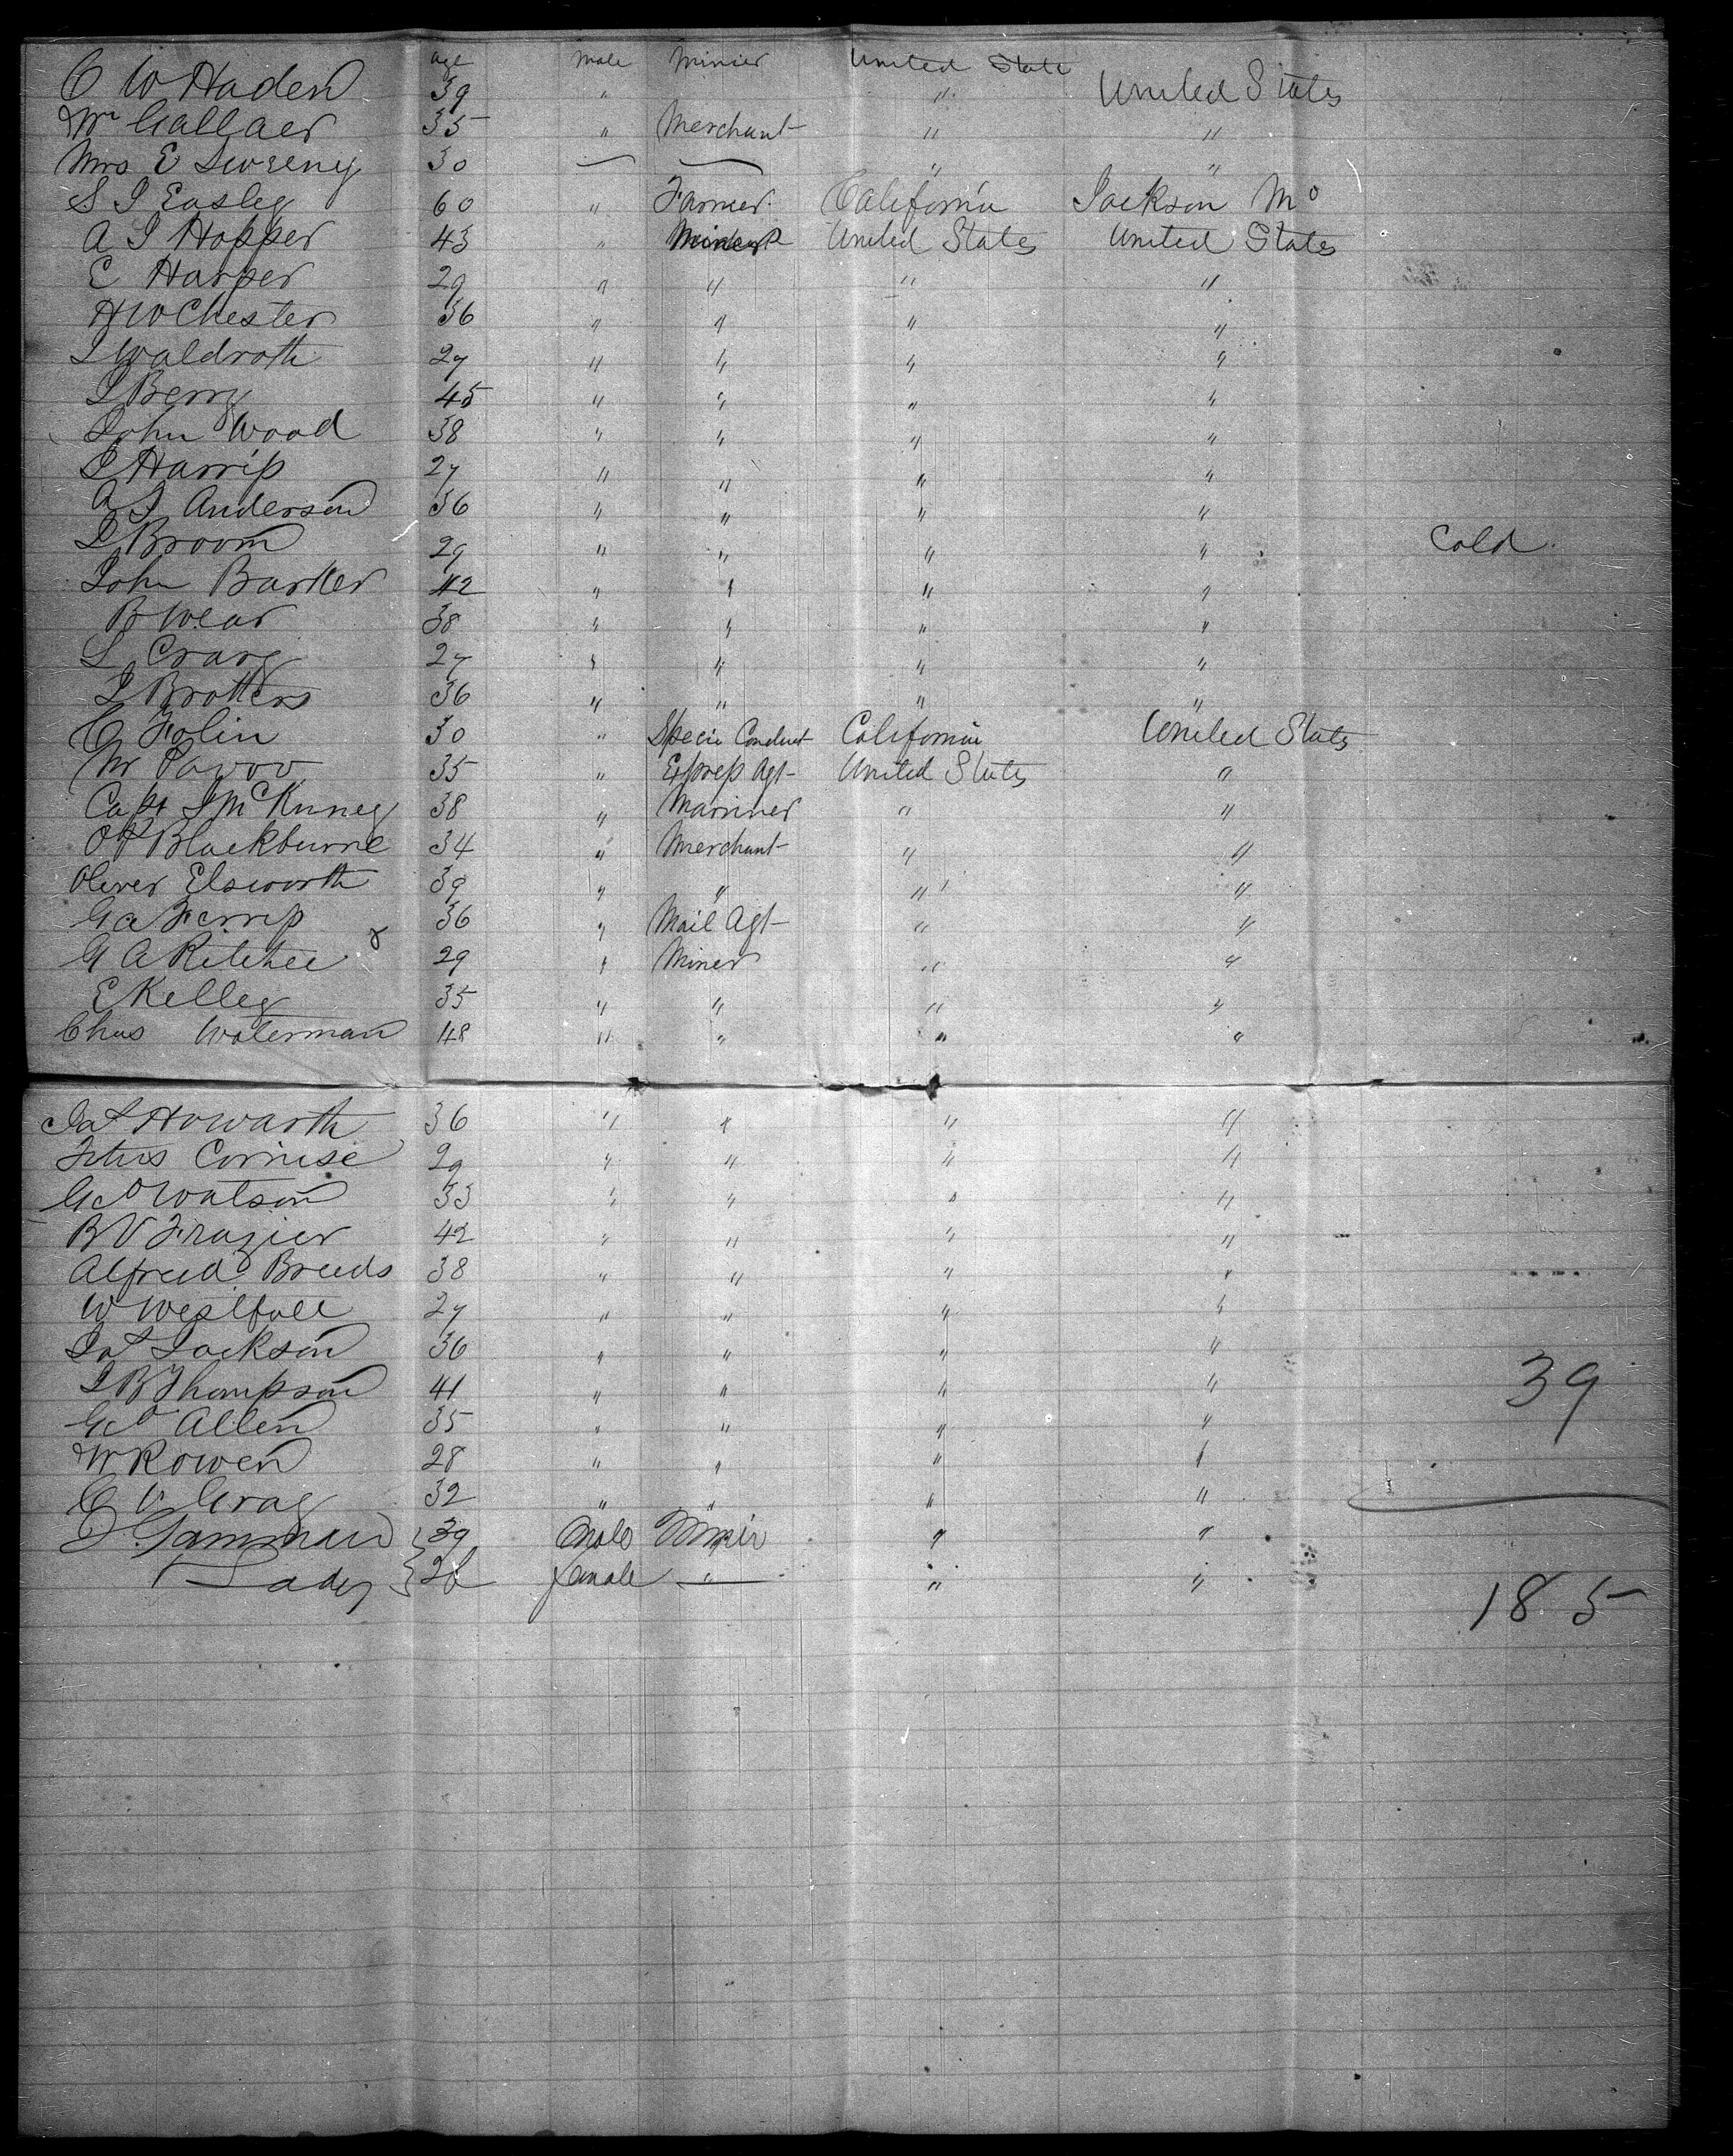 age male Minier United State
C W Haden 39 " " United States
Mr Gallaer 35 " Merchant " "
Mrs E Sweeney 30 — — " "
S I Easley 60 " Farmer California Jackson Mo
A J Hopper 43 " United States United States
E Harper 29 " " " "
H W Chester 36 " " " "
J Waldroth 27 " " " "
J Berry 45 " " " "
John Wood 38 " " " "
J Harris 27 " " " "
A J Anderson 36 " " " "
J Broom 29 " " " " Cold
John Barker 42 " " " "
B Wear 38 " " " "
S Crarg 27 " " " "
J Brotters 36 " " " "
C Folin 30 " Specie Conduct California United States
Mr 35 " Express Agt United States "
Capt J McKinney 38 " Marriner " "
Blackburne 34 " Merchant " "
Oliver Elsworth 39 " " " "
Geo Ferris 36 " Mail Agt " "
G A Ritchee 29 " Miner " "
E Kelley 35 " " " "
Chas Waterman 48 " " " "
Jas Howarth 36 " " " "
Titus Cornise 29 " " " "
Geo Watson 33 " " " "
B V Frazier 42 " " " "
Alfred Breeds 38 " " " "
W Westfall 27 " " " "
Jas Jackson 36 " " " "
J B Thompson 41 " " " " 39
Geo Allen 35 " " " "
W Rowen 28 " " " "
C V Gray 32 " " " "
39 Male " "
Lady female " — " "
185